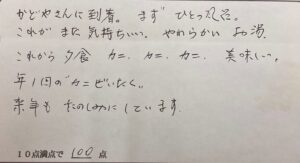 かどやさんに到着。まず ひとっ風呂。
これが また 気持ちいい。やわらかい お湯。
これから 夕食 カニ、カニ、カニ、美味しい。
年1回の カニぜいたく。
来年も たのしみに しています
10点満点で 100 点